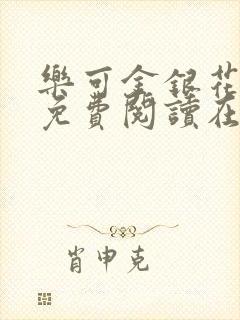 樂可金銀花
免費閱讀在
肖申克